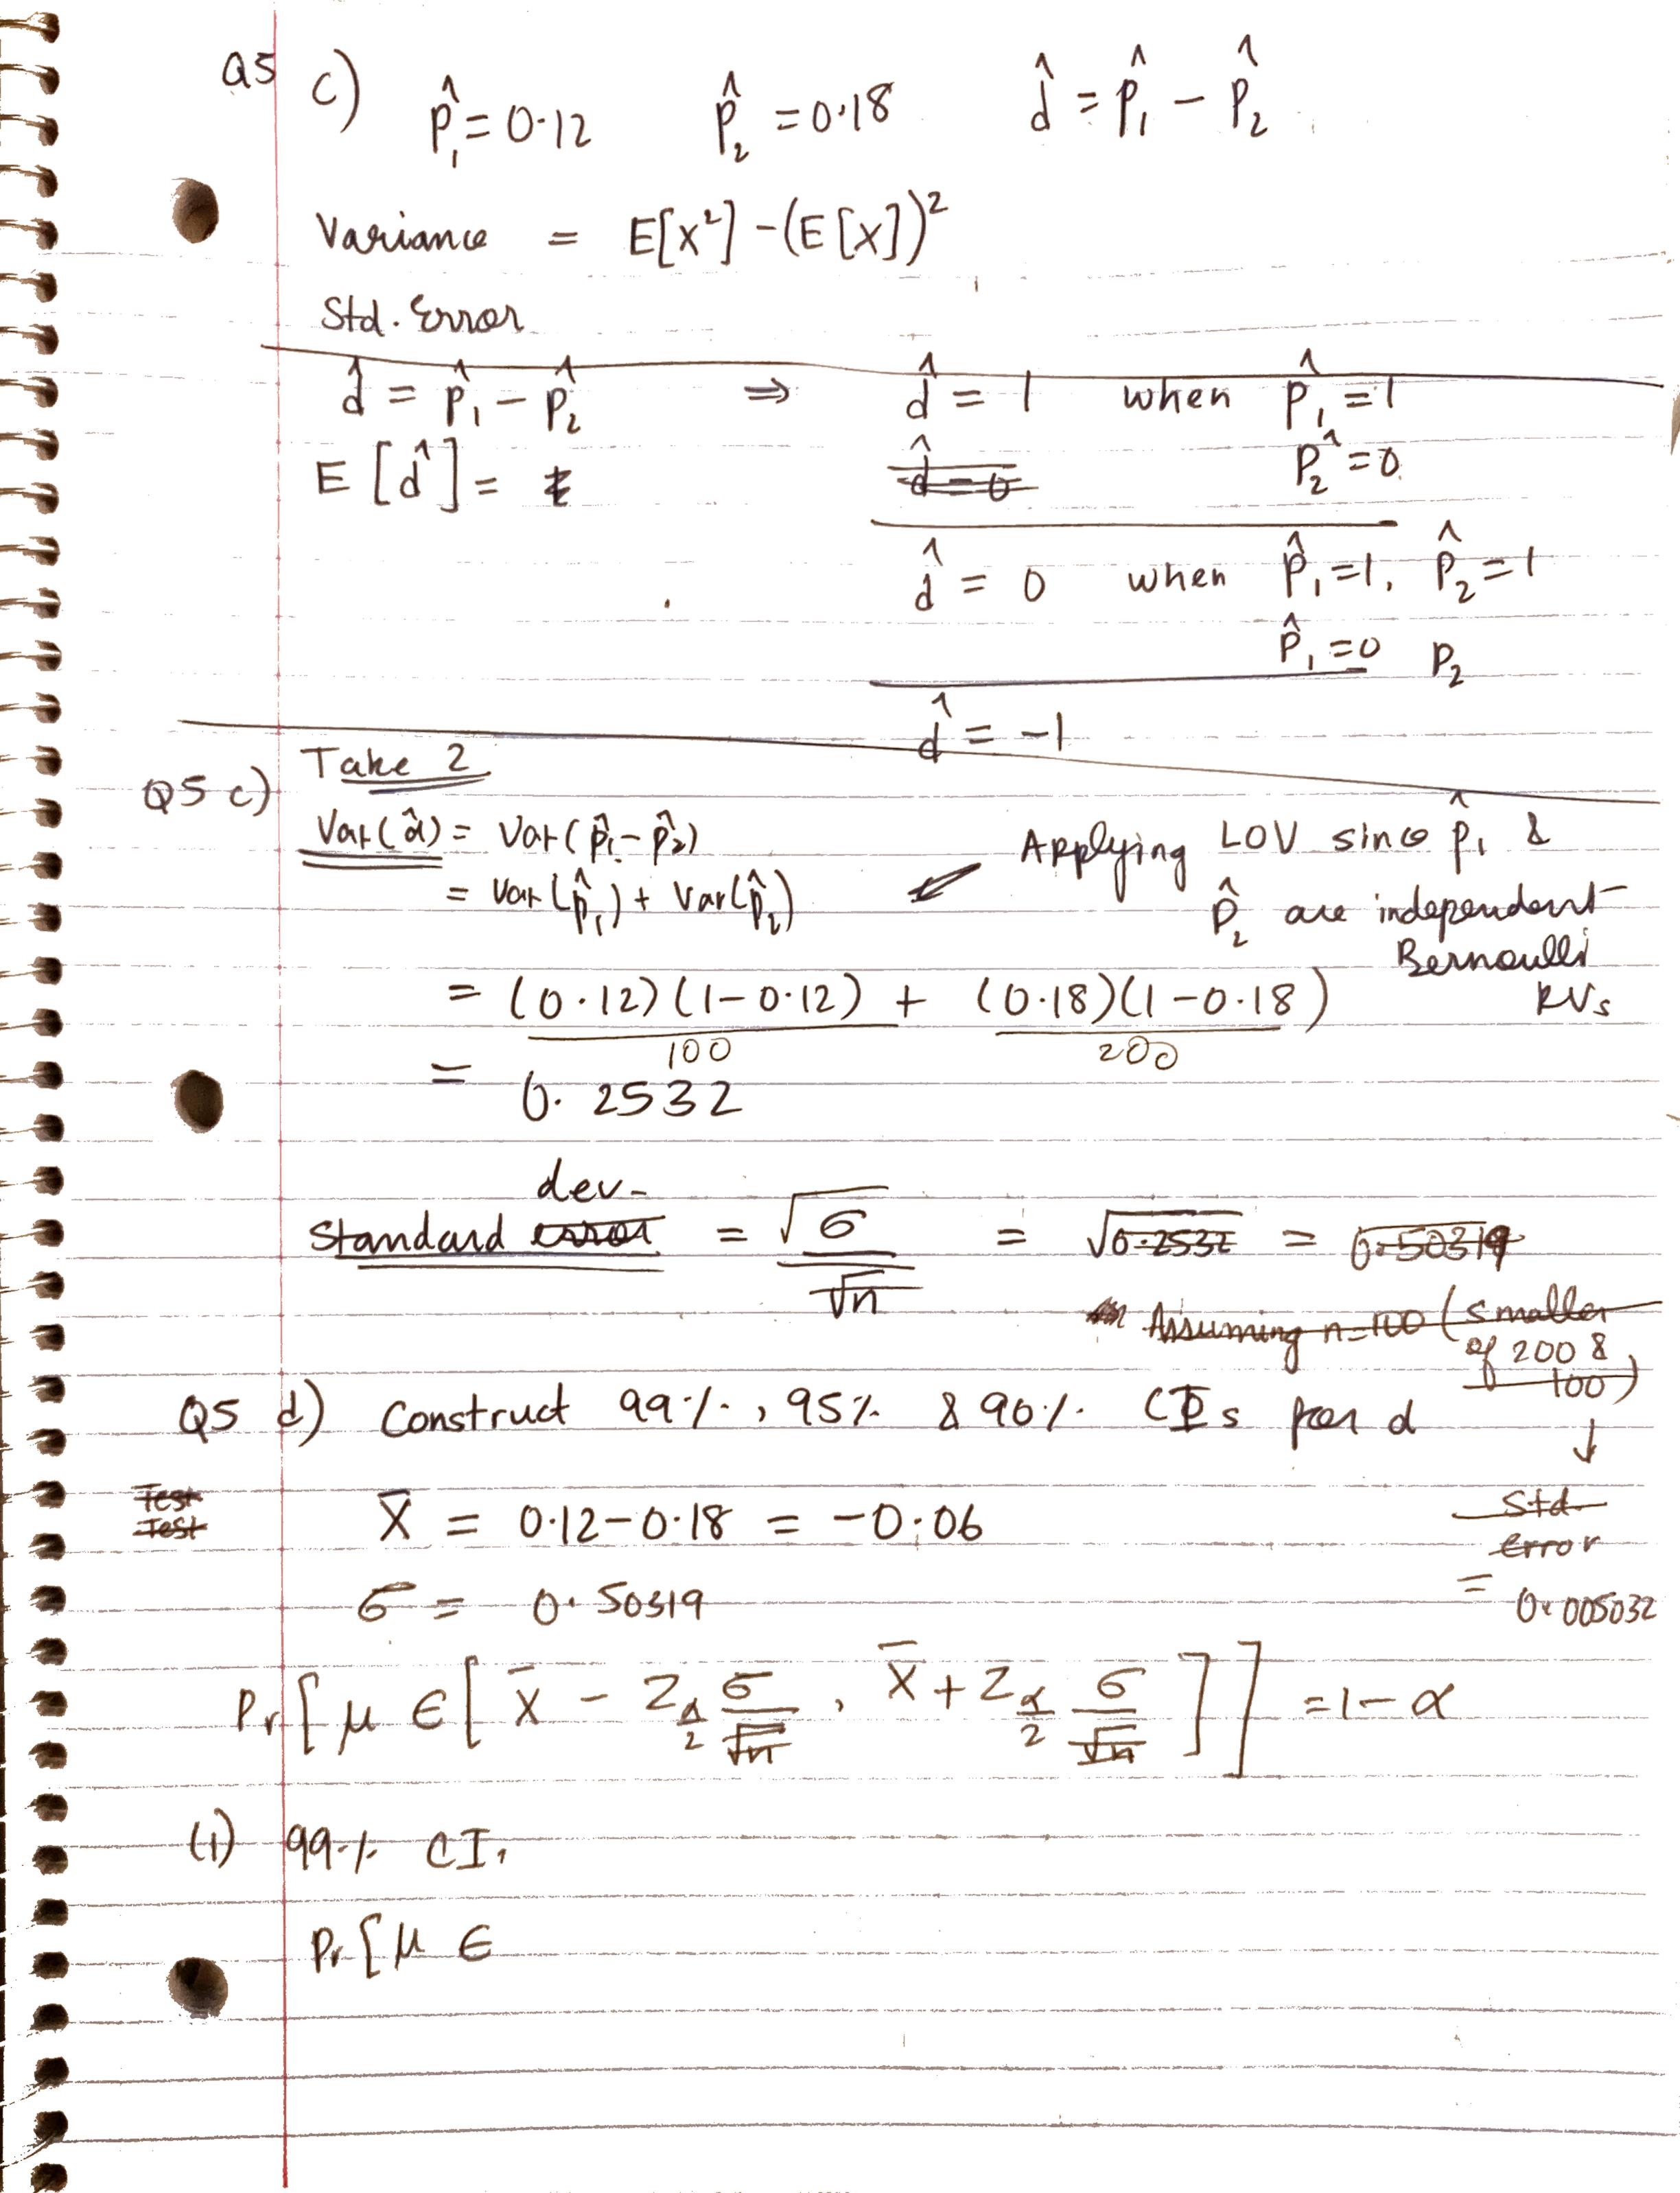 Q5 c) p̂₁ = 0.12 p̂₂ = 0.18 d̂ = p̂₁ − p̂₂
Variance = E[X²] − (E[X])²
Std. Error
d̂ = p̂₁ − p̂₂ ⇒ d̂ = 1 when p̂₁ = 1
E[d̂] = d̂ = 0 p̂₂ = 0
d̂ = 0 when p̂₁ = 1, p̂₂ = 1
p̂₁ = 0 p₂
d̂ = −1
Q5 c) Take 2
Var(d̂) = Var(p̂₁ − p̂₂) ↙ Applying LOV since p̂₁ &
= Var(p̂₁) + Var(p̂₂) p̂₂ are independent
Bernoulli
RVs
= (0.12)(1−0.12)/100 + (0.18)(1−0.18)/200
= 0.2532
dev.
Standard error = √σ/√n = √0.2532 = 0.50319
Assuming n=100 (smaller
of 200 &
100)
↓
Std
error
= 0.005032
Q5 d) Construct 99%, 95% & 90% CIs for d
Test
Test
X̄ = 0.12 − 0.18 = −0.06
σ = 0.50319
Pr[μ ∈ [X̄ − Z_α/2 σ/√n, X̄ + Z_α/2 σ/√n]] = 1 − α
(1) 99% CI.
Pr[μ ∈